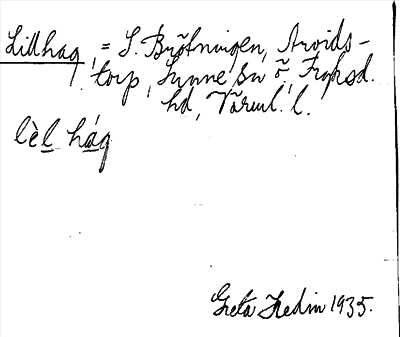 Lillhag, = S. Brötningen, Arvids-
torp, Sunne sn ö. Fryksd.
hd, Värml. l.
lèl hág
Greta Hedin 1935.